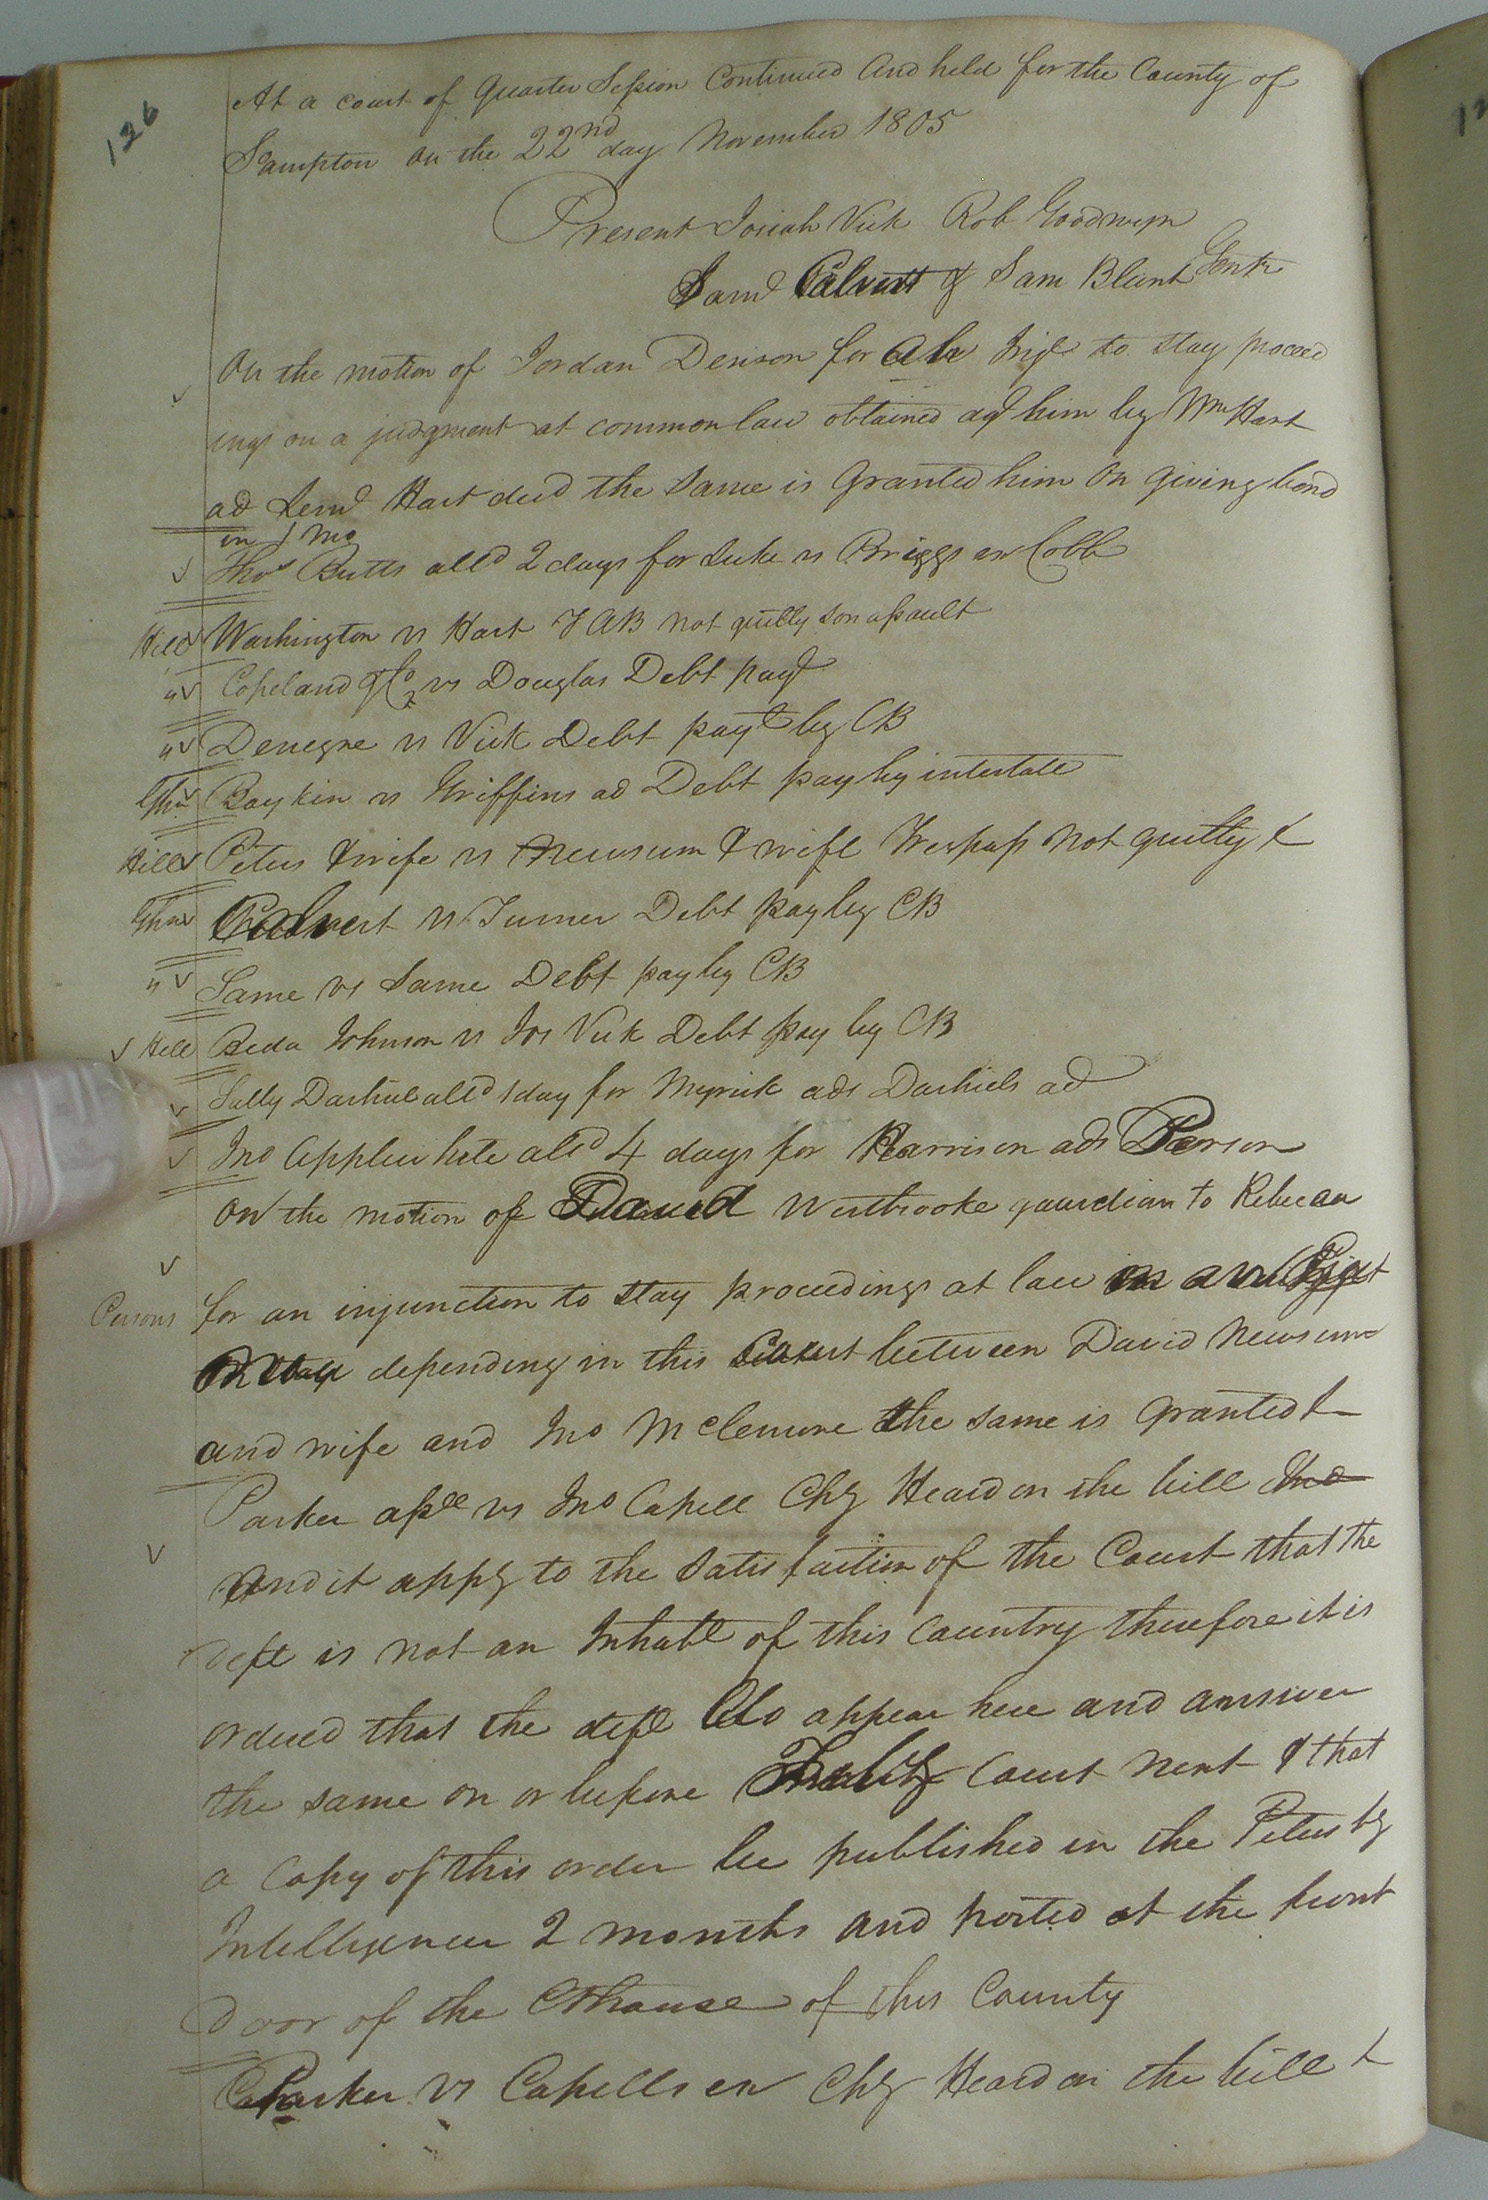 126
At a court of Quarter Session Continued And held for the County of
Sampton on the 22nd day November 1805
Present Josiah Vick Rob Goodwyn
Saml Calvert & Sam Blunt Gent
On the motion of Jordan Denson for an Inj to stay proceed
ings on a judgment at common law obtained agt him by Wm Hart
ad Leml Hart decd the same is Granted him on giving bond
in 1 mo
Thos Butts alld 2 days for Luke vs Briggs exr Cobb
Hill Washington vs Hart TAB not guilty son assault
" Copeland & Co vs Douglas Debt payt
" Denegre vs Vick Debt payt by CB
Boykin vs Griffins ad Debt pay by intestate
Hill Peters & wife vs Newsum & wife Trespass not guilty &
Calvert vs Turner Debt pay by CB
" Same vs Same Debt pay by CB
Hill Beda Johnson vs Jos Vick Debt pay by CB
Sally Dashiel alld 1 day for Myrick ads Dashiels ad
Jno Applewhite alld 4 days for Harrison ads Person
On the motion of David Westbrooke guardian to Rebecca
Persons for an injunction to stay proceedings at law in a
depending in this Court between David Newsum
and wife and Jno McLemore the same is granted &
Parker assee vs Jno Capell Chy Heard on the bill the
And it appg to the satisfaction of the Court that the
deft is not an Inhabt of this Country therefore it is
ordered that the deft do appear here and answer
the same on or before Court next & that
a Copy of this order be published in the Petersbg
Intelligencer 2 months and posted at the front
Door of the Cthouse of this County
Parker vs Capells exr Chy Heard on the bill &